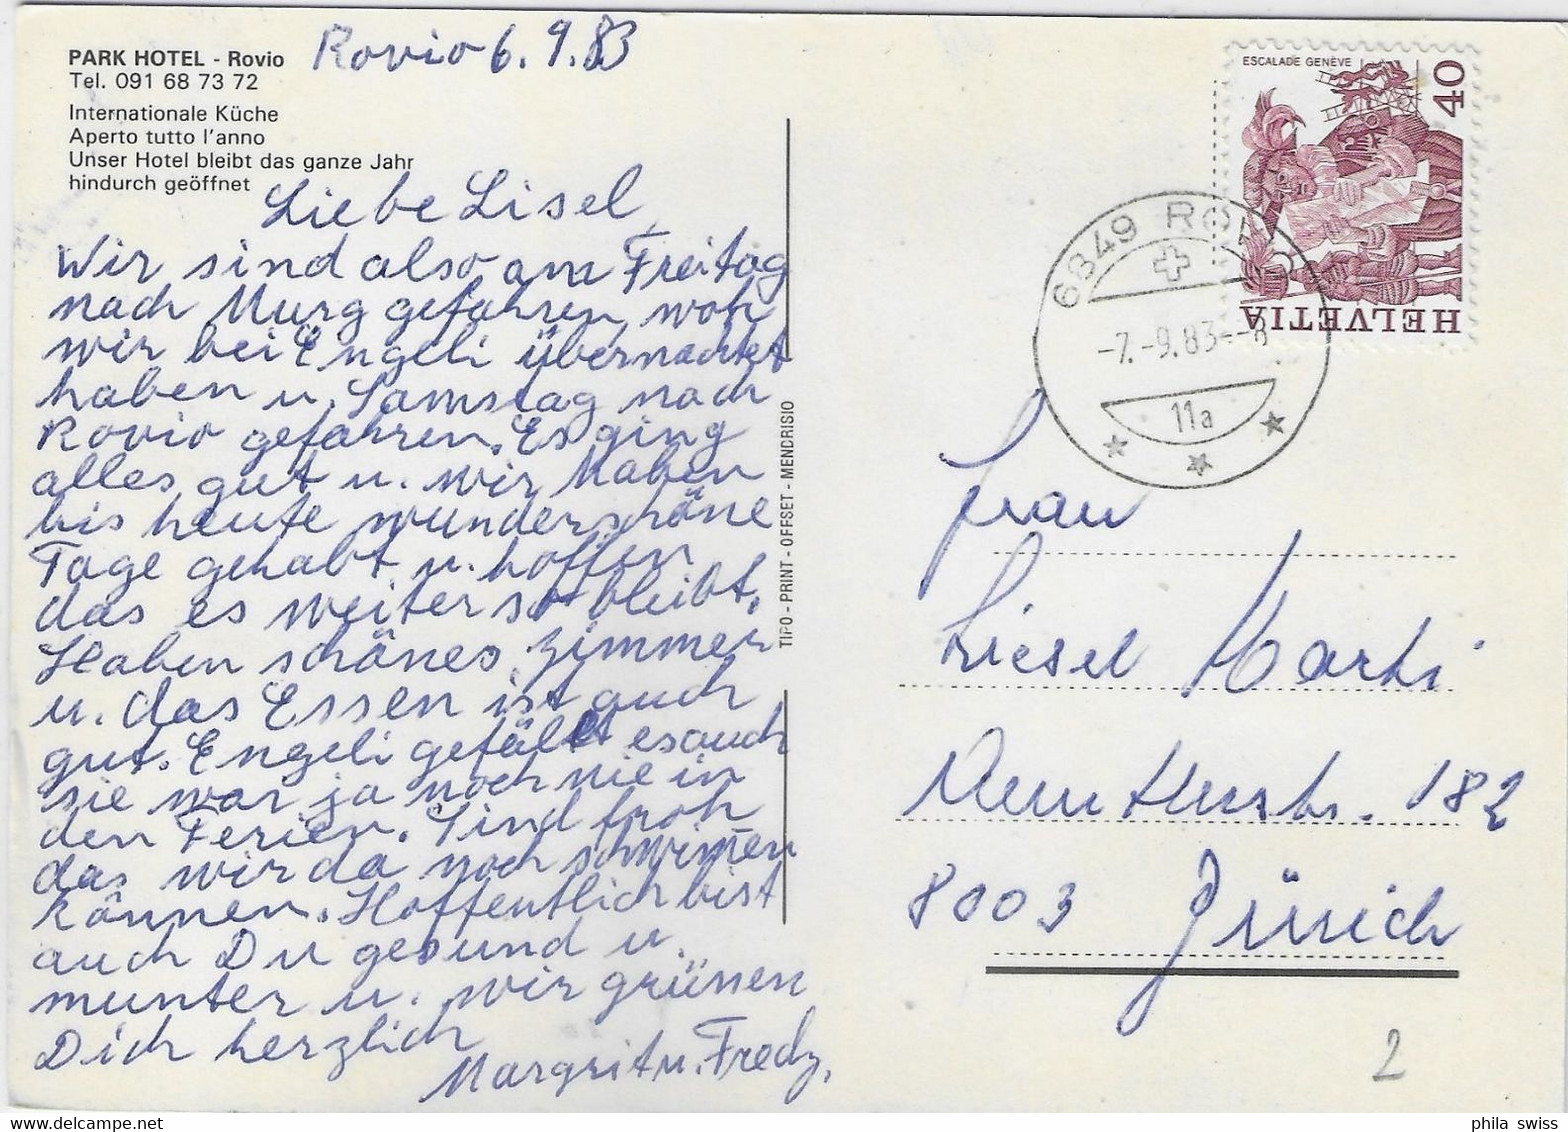 PARK HOTEL - Rovio
Tel. 091 68 73 72
Internationale Küche
Aperto tutto l'anno
Unser Hotel bleibt das ganze Jahr
hindurch geöffnet
Rovio 6.9.83
Liebe Lisel,
Wir sind also am Freitag
nach Murg gefahren, woh
wir bei Engeli übernachtet
haben u. Samstag nach
Rovio gefahren. Es ging
alles gut u. wir haben
bis heute wunderschöne
Tage gehabt u. hoffen
das es weiter so bleibt.
Haben schönes Zimmer
u. das Essen ist auch
gut. Engeli gefällt es auch
sie war ja noch nie in
den Ferien. Sind froh
das wir da noch schwimen
können. Hoffentlich bist
auch Du gesund u.
munter u. wir grüssen
Dich herzlich
Margrit u. Fredy.
TIPO - PRINT - OFFSET - MENDRISIO
ESCALADE GENÈVE
40
HELVETIA
6849 ROV
-7.-9.83--8
11a
Frau
Liesel Marti
182
8003 Zürich
2
phila swiss